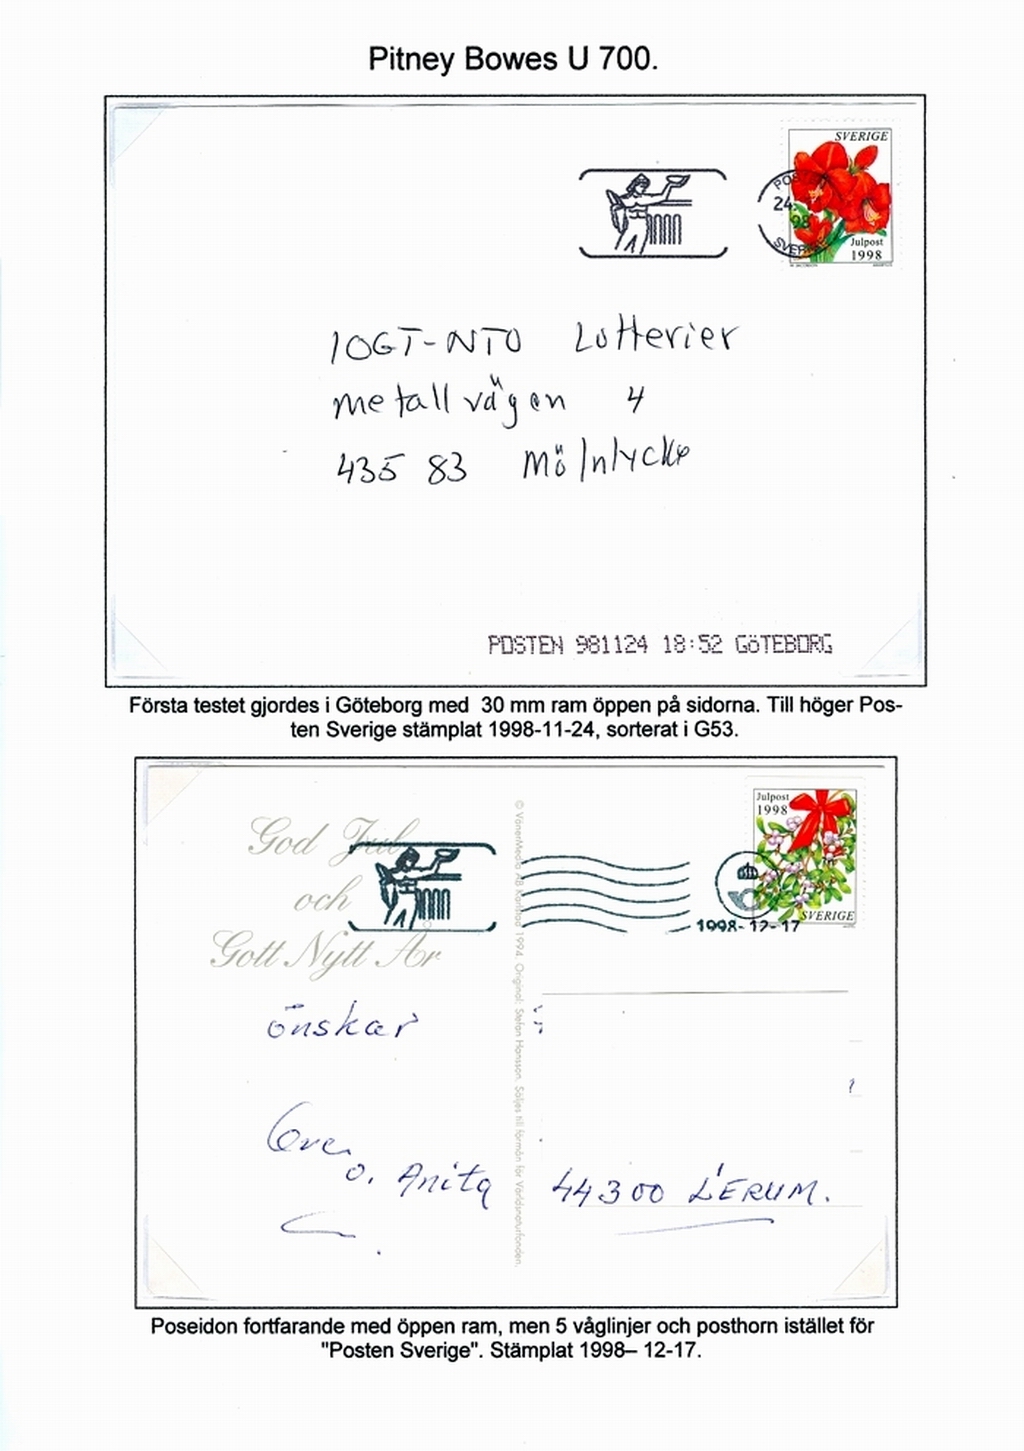 Pitney Bowes U 700.
SVERIGE
POS
24.
98
SVERI
Julpost
1998
IOGT-NTO Lotterier
metallvägen 4
435 83 Mölnlycke
POSTEN 981124 18:52 GÖTEBORG
Första testet gjordes i Göteborg med 30 mm ram öppen på sidorna. Till höger Pos-
ten Sverige stämplat 1998-11-24, sorterat i G53.
Julpost
1998
SVERIGE
1998-12-17
God Jul
och
Gott Nytt År
önskar
o. Anita
© VänerMedia AB Karlstad 1994. Original: Stefan Hansson. Säljes till förmån för Världsnaturfonden.
44300 LERUM.
Poseidon fortfarande med öppen ram, men 5 våglinjer och posthorn istället för
"Posten Sverige". Stämplat 1998– 12-17.